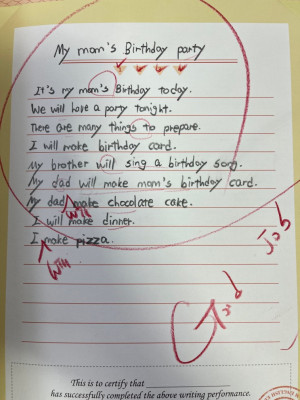 My mom's Birthday party
It's my mom's Birthday today.
We will have a party tonight.
There are many things to prepare.
I will make birthday card.
My brother will sing a birthday song.
My dad will make mom's birthday card.
My dad will make chocolate cake.
I will make dinner.
I will make pizza.
Job
This is to certify that
has successfully completed the above writing performance.